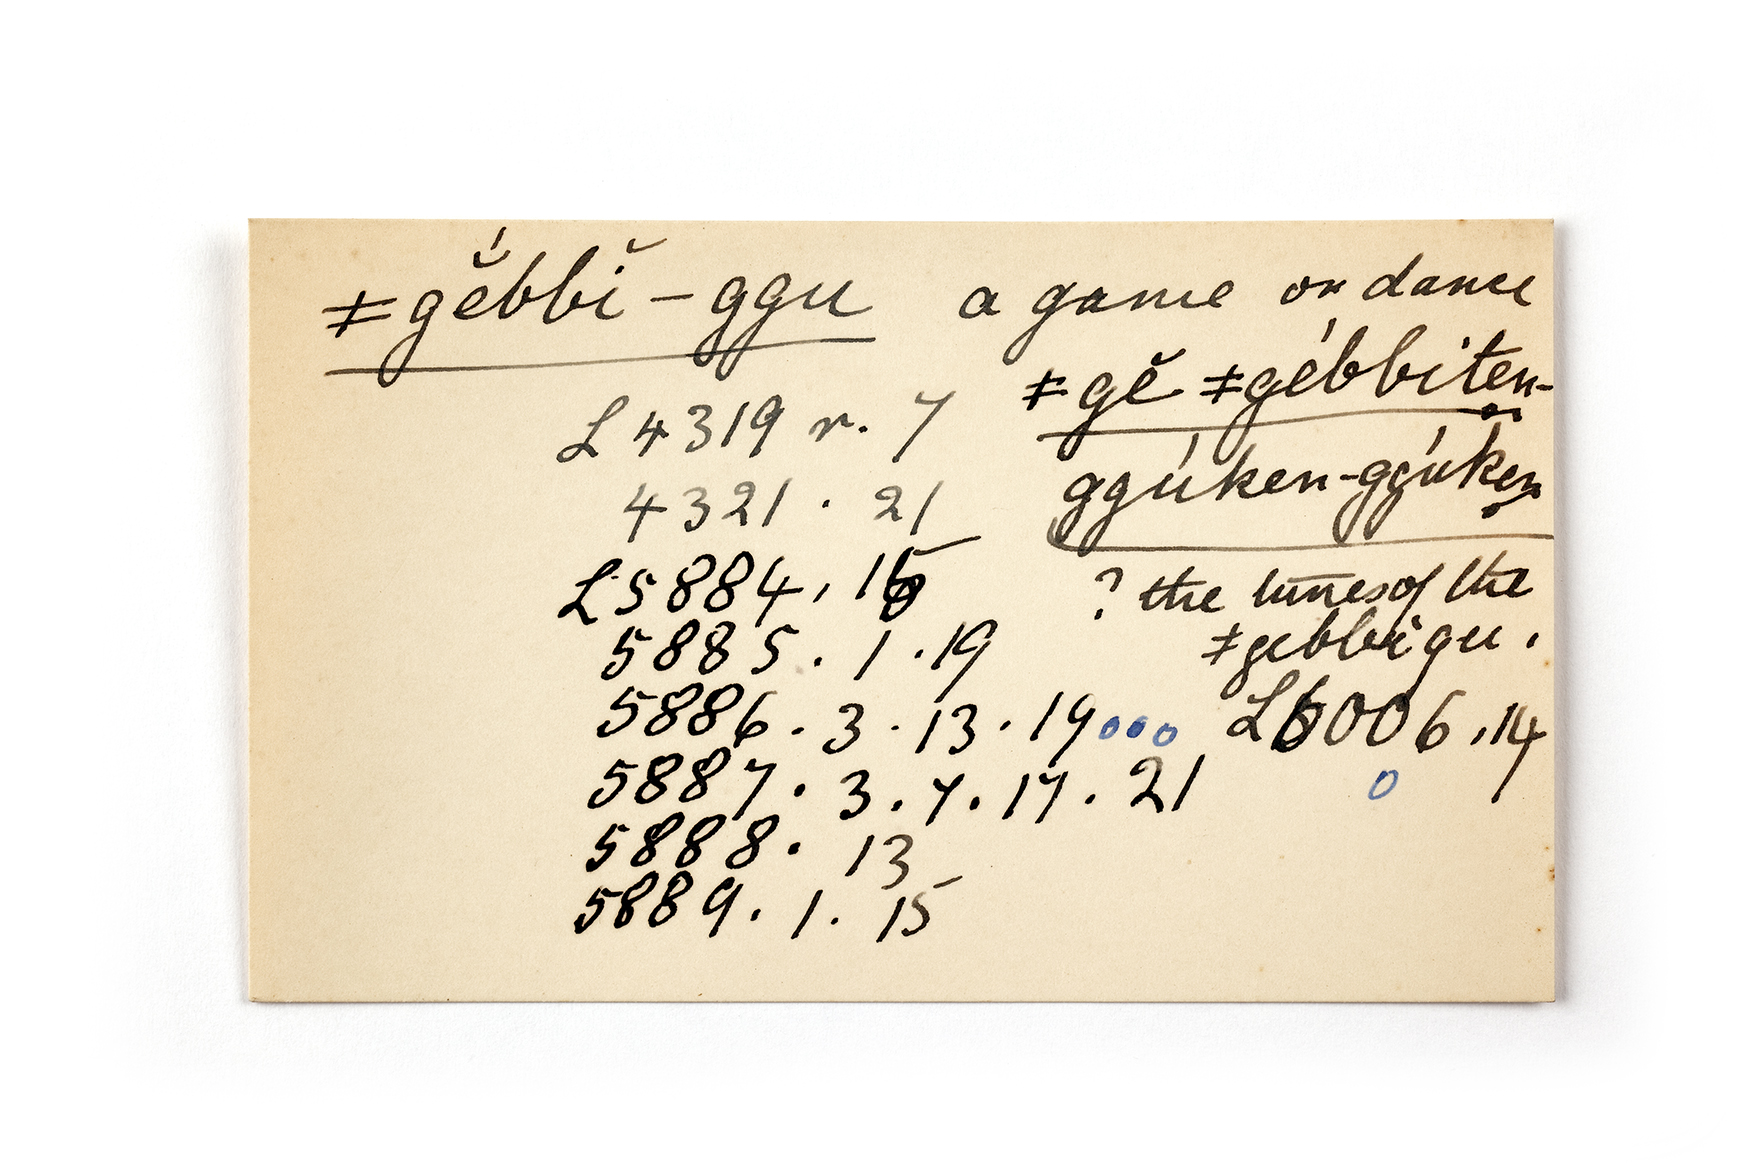 ǂgĕ́bbĭ-ggu a game or dance
L 4319 r. 7
4321 . 21
L 5884, 15
5885 . 1 . 19
5886 . 3 . 13 . 19
5887 . 3 . 7 . 17 . 21
5888 . 13
5889 . 1 . 15
ǂgĕ ǂgébbiten-
ggúken-ggúken
? the tunes of the
ǂgebbigu.
L 6006, 14